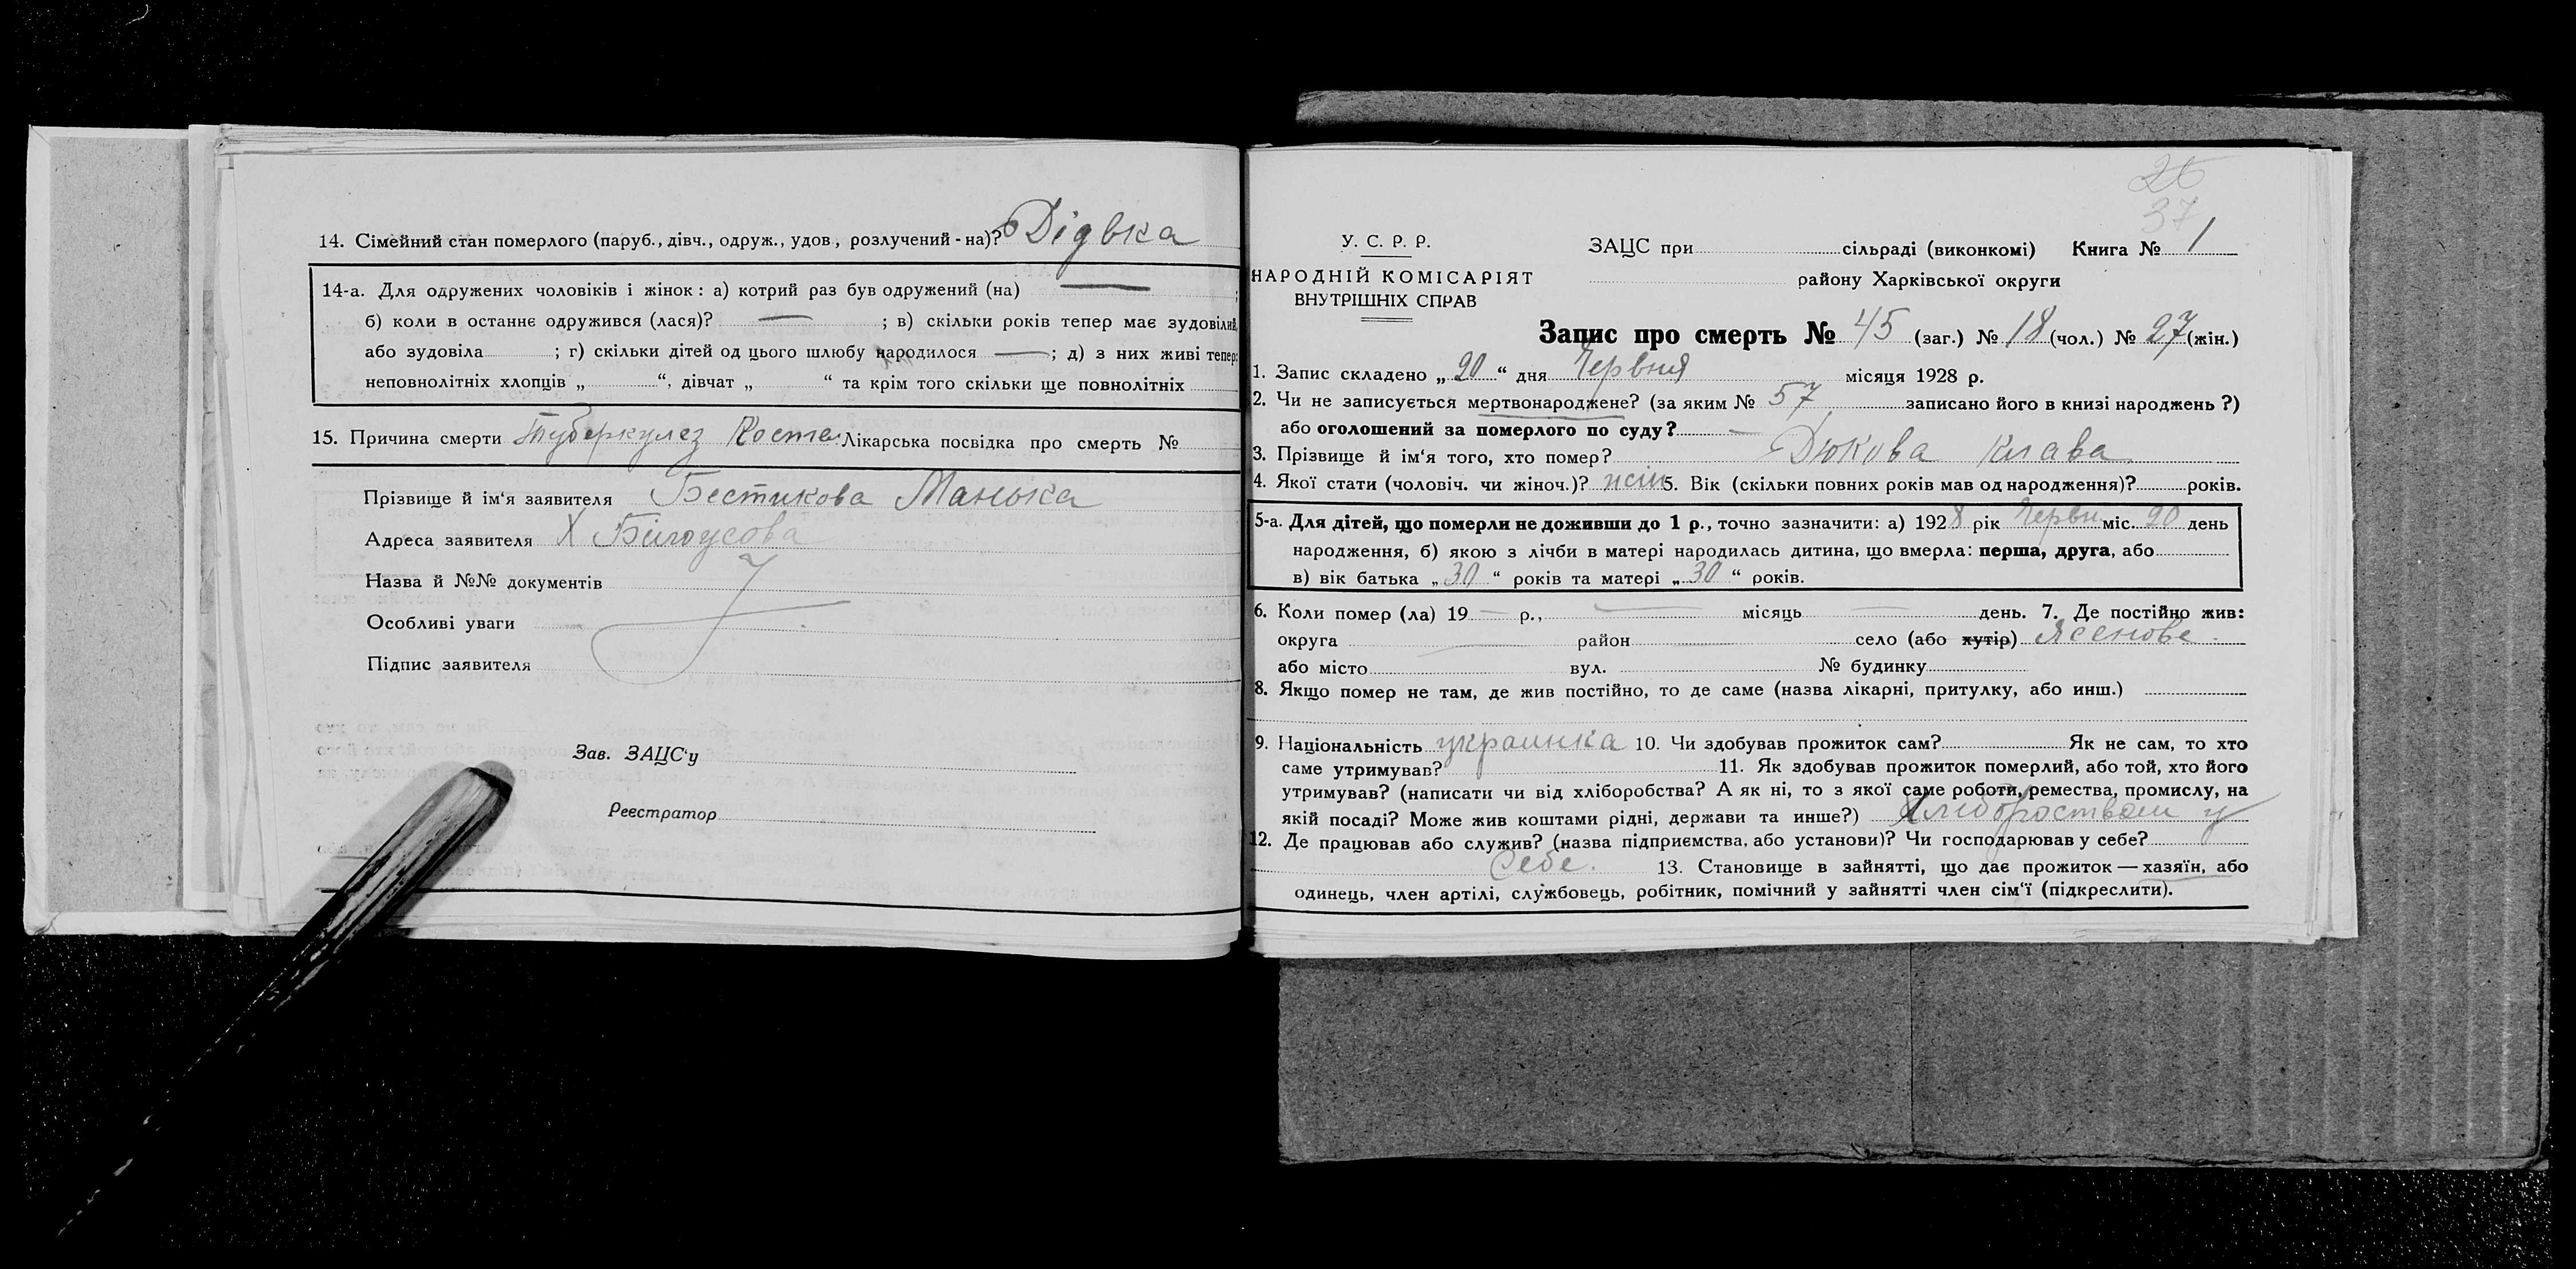 14. Сімейний стан померлого (паруб., дівч., одруж., удов., розлучений - на)? Дівка
14-а. Для одружених чоловіків і жінок: а) котрий раз був одружений (на) — ;
б) коли в останнє одружився (лася)? — ; в) скільки років тепер має зудовілий,
або зудовіла ; г) скільки дітей од цього шлюбу народилося — ; д) з них живі тепер:
неповнолітніх хлопців „ “, дівчат „ “ та крім того скільки ще повнолітніх
15. Причина смерти Туберкулез Косте. Лікарська посвідка про смерть №
Прізвище й ім'я заявителя Бестикова Манька
Адреса заявителя Х Білоусова
Назва й №№ документів
Особливі уваги
Підпис заявителя
Зав. ЗАЦС'у
Реєстратор
26
37
У. С. Р. Р.
НАРОДНІЙ КОМІСАРІЯТ
ВНУТРІШНІХ СПРАВ
ЗАЦС при сільраді (виконкомі) Книга № 1
району Харківської округи
Запис про смерть № 45 (заг.) № 18 (чол.) № 27 (жін.)
1. Запис складено „ 20 “ дня Червня місяця 1928 р.
2. Чи не записується мертвонароджене? (за яким № 57 записано його в книзі народжень ?)
або оголошений за померлого по суду? —
3. Прізвище й ім'я того, хто помер? Дюкова Клава
4. Якої стати (чоловіч. чи жіноч.)? жін 5. Вік (скільки повних років мав од народження)? років.
5-а. Для дітей, що померли не доживши до 1 р., точно зазначити: а) 1928 рік Червн міс. 20 день
народження, б) якою з лічби в матері народилась дитина, що вмерла: перша, друга, або
в) вік батька „ 30 “ років та матері „ 30 “ років.
6. Коли помер (ла) 19 — р., — місяць — день. 7. Де постійно жив:
округа — район село (або хутір) Ясенове
або місто вул. № будинку
8. Якщо помер не там, де жив постійно, то де саме (назва лікарні, притулку, або инш.)
9. Національність украинка 10. Чи здобував прожиток сам? Як не сам, то хто
саме утримував? 11. Як здобував прожиток померлий, або той, хто його
утримував? (написати чи від хліборобства? А як ні, то з якої саме роботи, ремества, промислу, на
якій посаді? Може жив коштами рідні, держави та инше?) у
12. Де працював або служив? (назва підприємства, або установи)? Чи господарював у себе?
Себе. 13. Становище в зайнятті, що дає прожиток — хазяїн, або
одинець, член артілі, службовець, робітник, помічний у зайнятті член сім'ї (підкреслити).